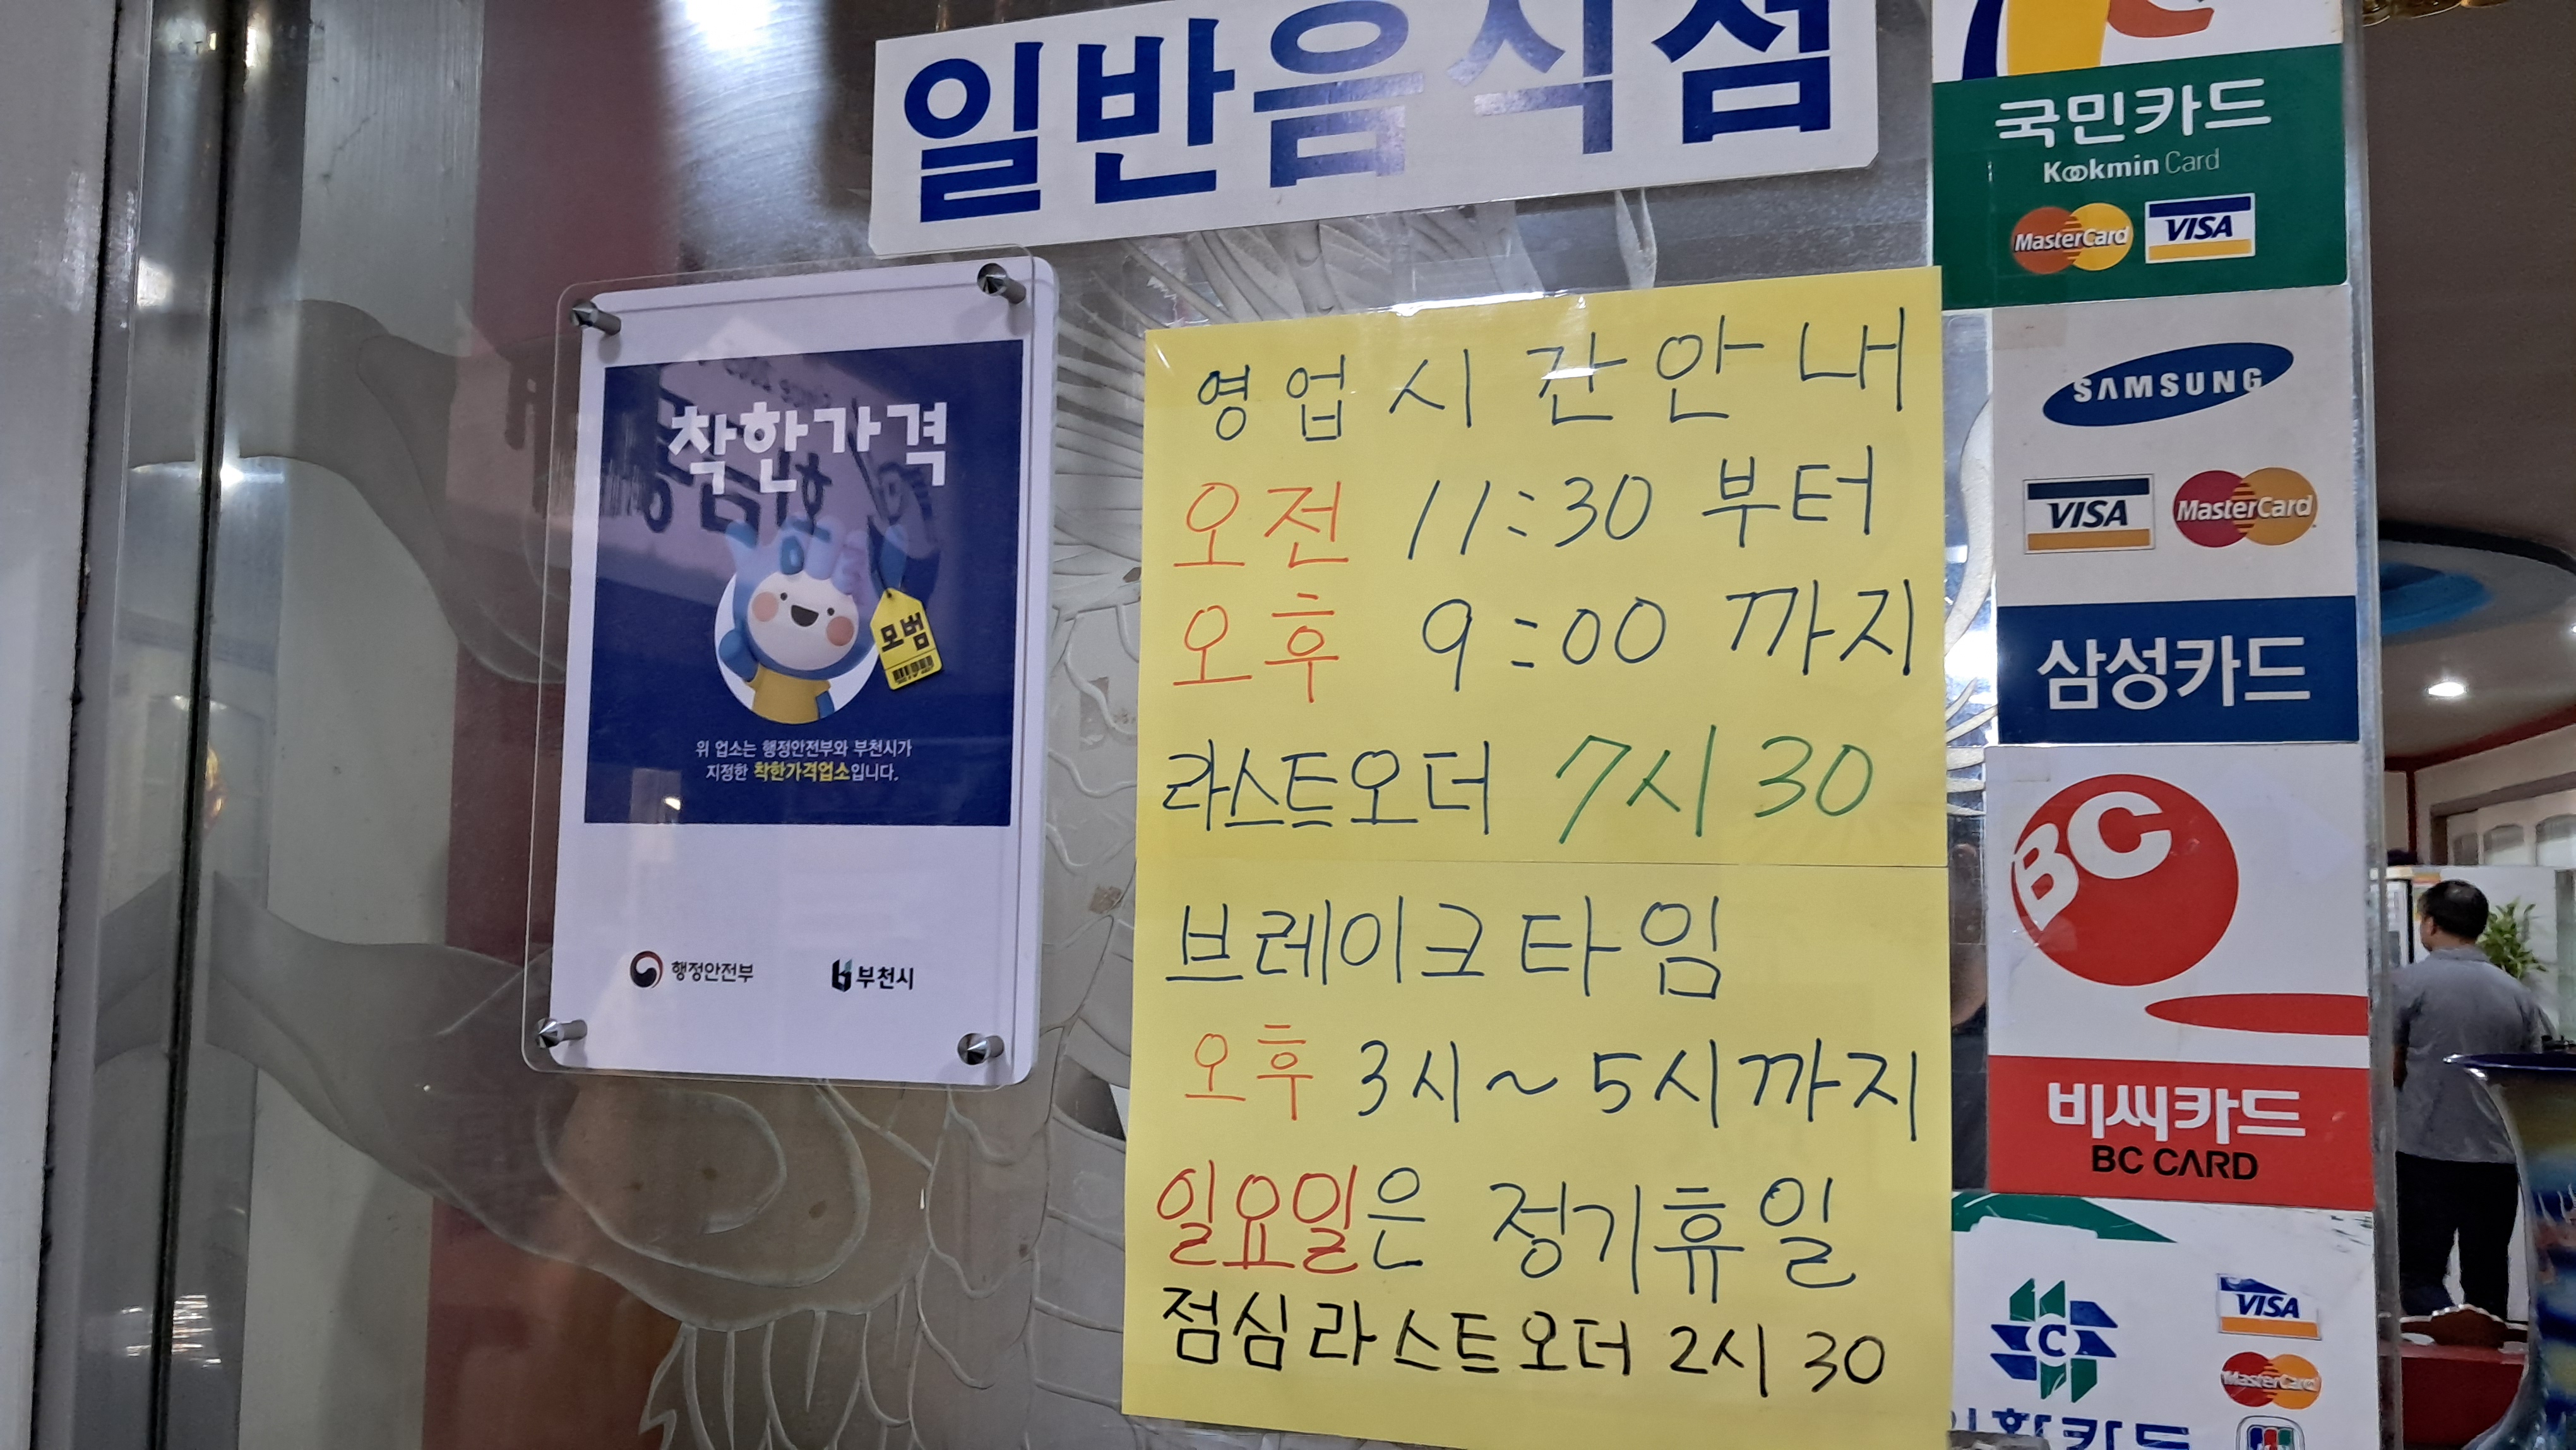 일반음식점
착한가격
모범
위 업소는 행정안전부와 부천시가
지정한 착한가격업소입니다.
행정안전부
부천시
영업시간안내
오전 11:30 부터
오후 9:00 까지
라스트오더 7시 30
브레이크타임
오후 3시~5시까지
일요일은 정기휴일
점심라스트오더 2시 30
국민카드
Kookmin Card
MasterCard VISA
SAMSUNG
VISA MasterCard
삼성카드
BC
비씨카드
BC CARD
C
VISA
MasterCard
JCB